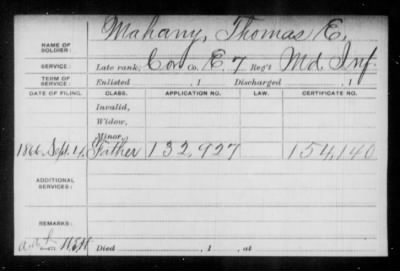 NAME OF SOLDIER: Mahany, Thomas E.
SERVICE: Late rank, Cor Co. E. 7 Reg't Md. Inf.
TERM OF SERVICE: Enlisted , 1 Discharged , 1
DATE OF FILING. CLASS. APPLICATION NO. LAW. CERTIFICATE NO.
Invalid,
Widow,
Minor,
1866, Sept. 4, Father 132,927 154,140
ADDITIONAL SERVICES:
REMARKS:
Died , 1 , at